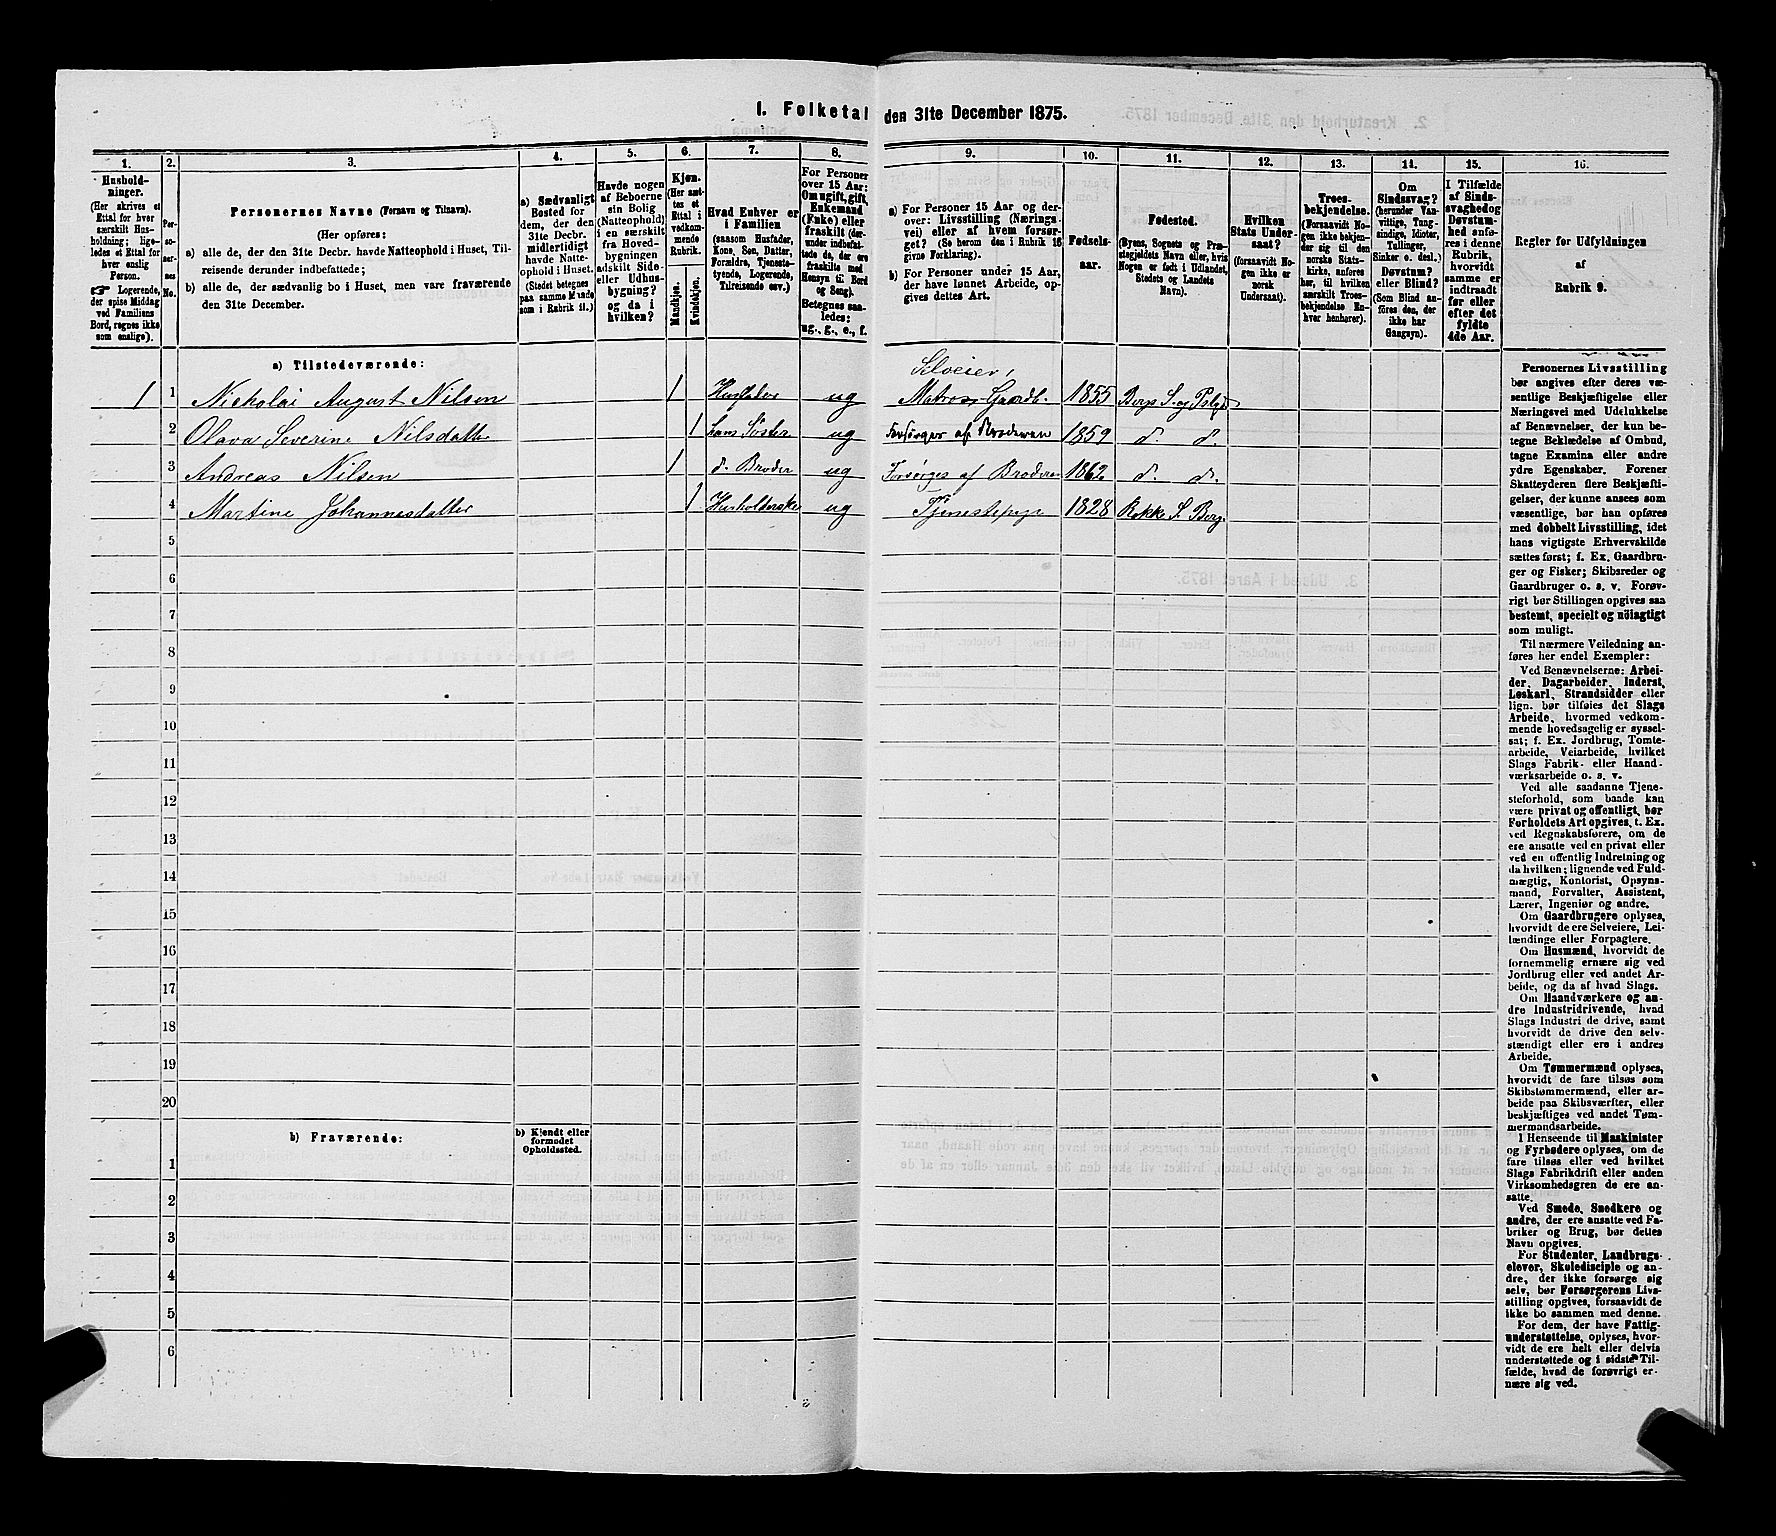 I. Folketal den 31te December 1875.
1.
Hushold-
ninger.
(Her skrives et
Ettal for hver
særskilt Hus-
holdning; lige-
ledes et Ettal for
hver enslig
Person.
Logerende,
der spise Middag
ved Familiens
Bord, regnes ikke
som enslige).
2.
Per-
so-
ner-
nes
No.
3.
Personernes Navne (Fornavn og Tilnavn).
(Her opføres:
a) alle de, der den 31te Decbr. havde Natteophold i Huset, Til-
reisende derunder indbefattede;
b) alle de, der sædvanlig bo i Huset, men vare fraværende
den 31te December.
4.
a) Sædvanligt
Bosted for
dem, der den
31te Decbr.
midlertidigt
havde Natte-
ophold i Huset.
(Stedet betegnes
paa samme Maade
som i Rubrik 11.)
5.
Havde nogen
af Beboerne
sin Bolig
(Natteophold)
i en særskilt
fra Hoved-
bygningen
adskilt Side-
eller Udhus-
bygning?
og da i
hvilken?
6.
Kjøn.
(Her sæt-
tes et
Ettal i
vedkom-
mende
Rubrik.
Mandkjøn.
Kvindekjøn.
7.
Hvad Enhver er
i Familien
(saasom Husfader,
Kone, Søn, Datter,
Forældre, Tjeneste-
tyende, Logerende,
Tilreisende osv.)
8.
For Personer
over 15 Aar:
Om ugift, gift,
Enkemand
(Enke) eller
fraskilt (der-
under indbefat-
tede de, der ere
fraskilte med
Hensyn til Bord
og Seng).
Betegnes saa-
ledes:
ug., g., e., f.
9.
a) For Personer 15 Aar og der-
over: Livsstilling (Nærings-
vei) eller af hvem forsør-
get? (Se herom den i Rubrik 16
givne Forklaring).
b) For Personer under 15 Aar,
der have lønnet Arbeide, op-
gives dettes Art.
10.
Fødsels-
aar.
11.
Fødested.
(Byens, Sognets og Præ-
stegjeldets Navn eller, hvis
Nogen er født i Udlandet,
Stedets og Landets
Navn).
12.
Hvilken
Stats Under-
saat?
(forsaavidt No-
gen ikke er
norsk
Undersaat).
13.
Troes-
bekjendelse.
(Forsaavidt No-
gen ikke bekjen-
der sig til den
norske Stats-
kirke, anføres
her, til hvilken
særskilt Troes-
bekjendelse En-
hver henhører).
14.
Om
Sindssvag?
(herunder Van-
vittige, Tung-
sindige, Idioter,
Tullinger,
Sinker o. desl.)
Døvstum?
eller Blind?
(Som Blind an-
føres den, der
ikke har
Gangsyn).
15.
I Tilfælde
af Sinds-
svaghed og
Døvstum-
hed anfø-
res i denne
Rubrik,
hvorvidt
samme er
indtraadt
før eller
efter det
fyldte
4de Aar.
16.
Regler for Udfyldningen
af
Rubrik 9.
a) Tilstedeværende:
Selveier,
1 1 Nickolai August Nilsen 1 Husfader ug Matros Gaardb. 1855 Bergs S. og Pstgjd
2 Olava Severine Nilsdatter 1 hans Søster ug Forsørges af Broderen 1859 d. d.
3 Andreas Nilsen 1 d. Broder ug Forsørges af Broderen 1862 d. d.
4 Martine Johannesdatter 1 Husholderske ug Tjenestepige 1828 Rokke S. Berg
5
6
7
8
9
10
11
12
13
14
15
16
17
18
19
20
b) Fraværende:
b) Kjendt eller
formodet
Opholdssted.
1
2
3
4
5
6
Personernes Livsstilling
bør angives efter deres væ-
sentlige Beskjæftigelse eller
Næringsvei med Udelukkelse
af Benævnelser, der kun be-
tegne Beklædelse af Ombud,
tagne Examina eller andre
ydre Egenskaber. Forener
Skatteyderen flere Beskjæfti-
gelser, der kunne ansees som
væsentlige, bør han opføres
med dobbelt Livsstilling, idet
hans vigtigste Erhvervskilde
sættes først; f. Ex. Gaardbru-
ger og Fisker; Skibsreder og
Gaardbruger o. s. v. Forøv-
rigt bør Stillingen opgives saa
bestemt, specielt og nöiagtigt
som muligt.
Til nærmere Veiledning an-
føres her endel Exempler:
Ved Benævnelserne: Arbei-
der, Dagarbeider, Inderst,
Løskarl, Strandsidder eller
lign. bør tilføies det Slags
Arbeide, hvormed vedkom-
mende hovedsagelig er syssel-
sat; f. Ex. Jordbrug, Tomte-
arbeide, Veiarbeide, hvilket
Slags Fabrik- eller Haand-
værksarbeide o. s. v.
Ved alle saadanne Tjene-
steforhold, som baade kan
være privat og offentligt, bør
Forholdets Art opgives, t. Ex.
ved Regnskabsførere, om de
ere ansatte ved en privat eller
ved en offentlig Indretning og
da hvilken; lignende ved Fuld-
mægtig, Kontorist, Opsyns-
mand, Forvalter, Assistent,
Lærer, Ingeniør og andre.
Om Gaardbrugere oplyses,
hvorvidt de ere Selveiere, Lei-
lændinge eller Forpagtere.
Om Husmænd, hvorvidt de
fornemmelig ernære sig ved
Jordbrug eller ved andet Ar-
beide, og da af hvad Slags.
Om Haandværkere og an-
dre Industridrivende, hvad
Slags Industri de drive, samt
hvorvidt de drive den selv-
stændigt eller ere i andres
Arbeide.
Om Tømmermænd oplyses,
hvorvidt de fare tilsøs som
Skibstømmermænd, eller ar-
beide paa Skibsværfter, eller
beskjæftiges ved andet Tøm-
mermandsarbeide.
I Henseende til Maskinister
og Fyrbødere oplyses, om de
fare tilsøs eller ved hvilket
Slags Fabrikdrift eller anden
Virksomhedsgren de ere an-
satte.
Ved Smede, Snedkere og
andre, der ere ansatte ved Fa-
briker og Brug, bør dettes
Navn opgives.
For Studenter, Landbrugs-
elever, Skoledisciple og an-
dre, der ikke forsørge sig
selv, bør Forsørgerens Livs-
stilling opgives, forsaavidt de
ikke bo sammen med denne.
For dem, der have Fattig-
understøttelse, oplyses, hvor-
vidt de ere helt eller delvis
understøttede og i sidste Til-
fælde, hvad de forøvrigt er-
nære sig ved.